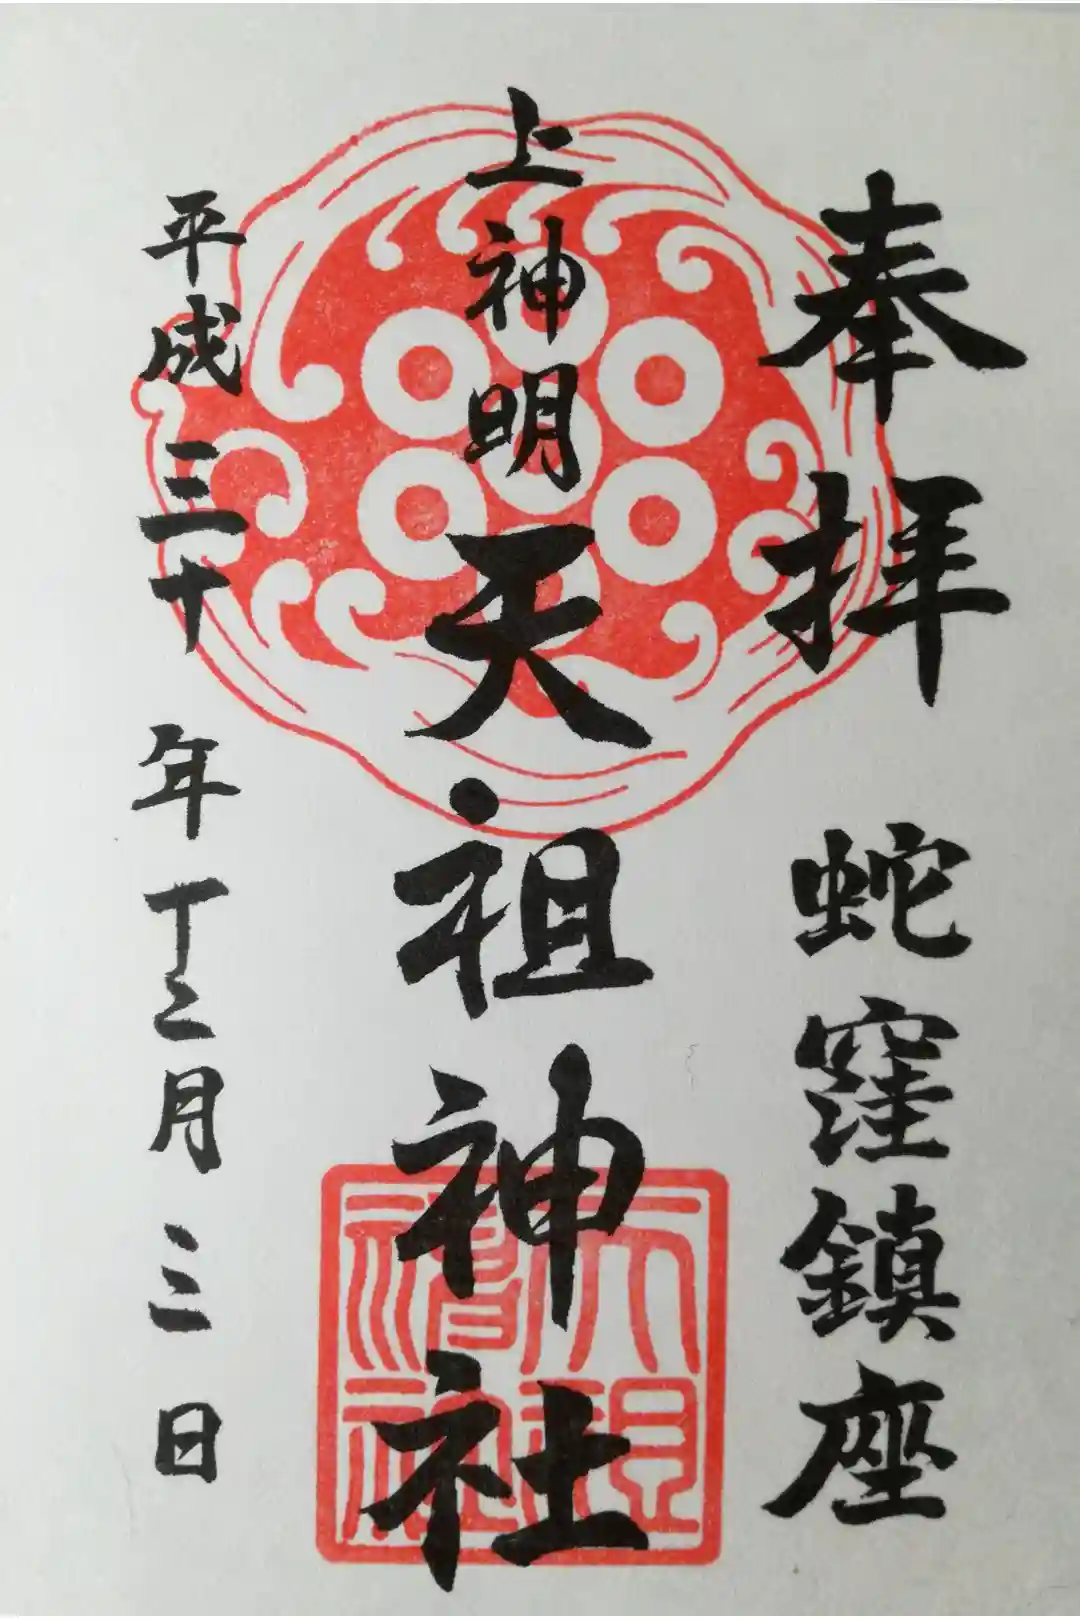 奉拝 蛇窪鎮座
上神明天祖神社
平成三十年十二月三日
天祖神社